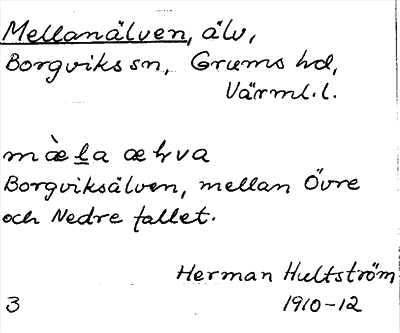 Mellanälven, älv,
Borgviks sn, Grums hd,
Värml. l.
mæ̀la
Borgviksälven, mellan Övre
och Nedre fallet.
Herman Hultström
3 1910-12